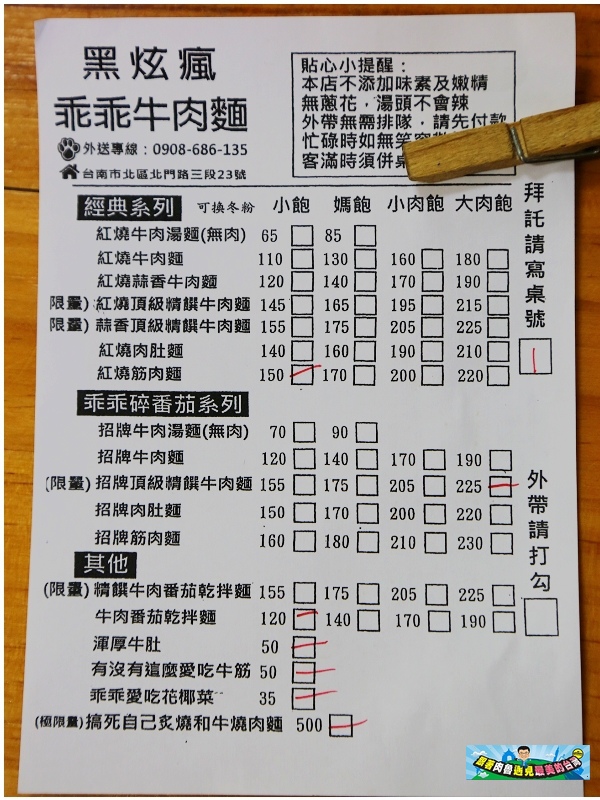 黑炫瘋
乖乖牛肉麵
外送專線：0908-686-135
台南市北區北門路三段23號
貼心小提醒：
本店不添加味素及嫩精
無蔥花，湯頭不會辣
外帶無需排隊，請先付款
忙碌時如無笑容
客滿時須併桌
經典系列 可換冬粉 小飽 媽飽 小肉飽 大肉飽
紅燒牛肉湯麵(無肉) 65 85
紅燒牛肉麵 110 130 160 180
紅燒蒜香牛肉麵 120 140 170 190
限量) 紅燒頂級精饌牛肉麵 145 165 195 215
限量) 蒜香頂級精饌牛肉麵 155 175 205 225
紅燒肉肚麵 140 160 190 210
紅燒筋肉麵 150 170 200 220
乖乖碎番茄系列
招牌牛肉湯麵(無肉) 70 90
招牌牛肉麵 120 140 170 190
(限量) 招牌頂級精饌牛肉麵 155 175 205 225
招牌肉肚麵 150 170 200 220
招牌筋肉麵 160 180 210 230
其他
(限量) 精饌牛肉番茄乾拌麵 155 175 205 225
牛肉番茄乾拌麵 120 140 170 190
渾厚牛肚 50
有沒有這麼愛吃牛筋 50
乖乖愛吃花椰菜 35
(極限量) 搞死自己炙燒和牛燒肉麵 500
拜託請寫桌號
1
外帶請打勾
跟著肉魯遇見最美的台灣